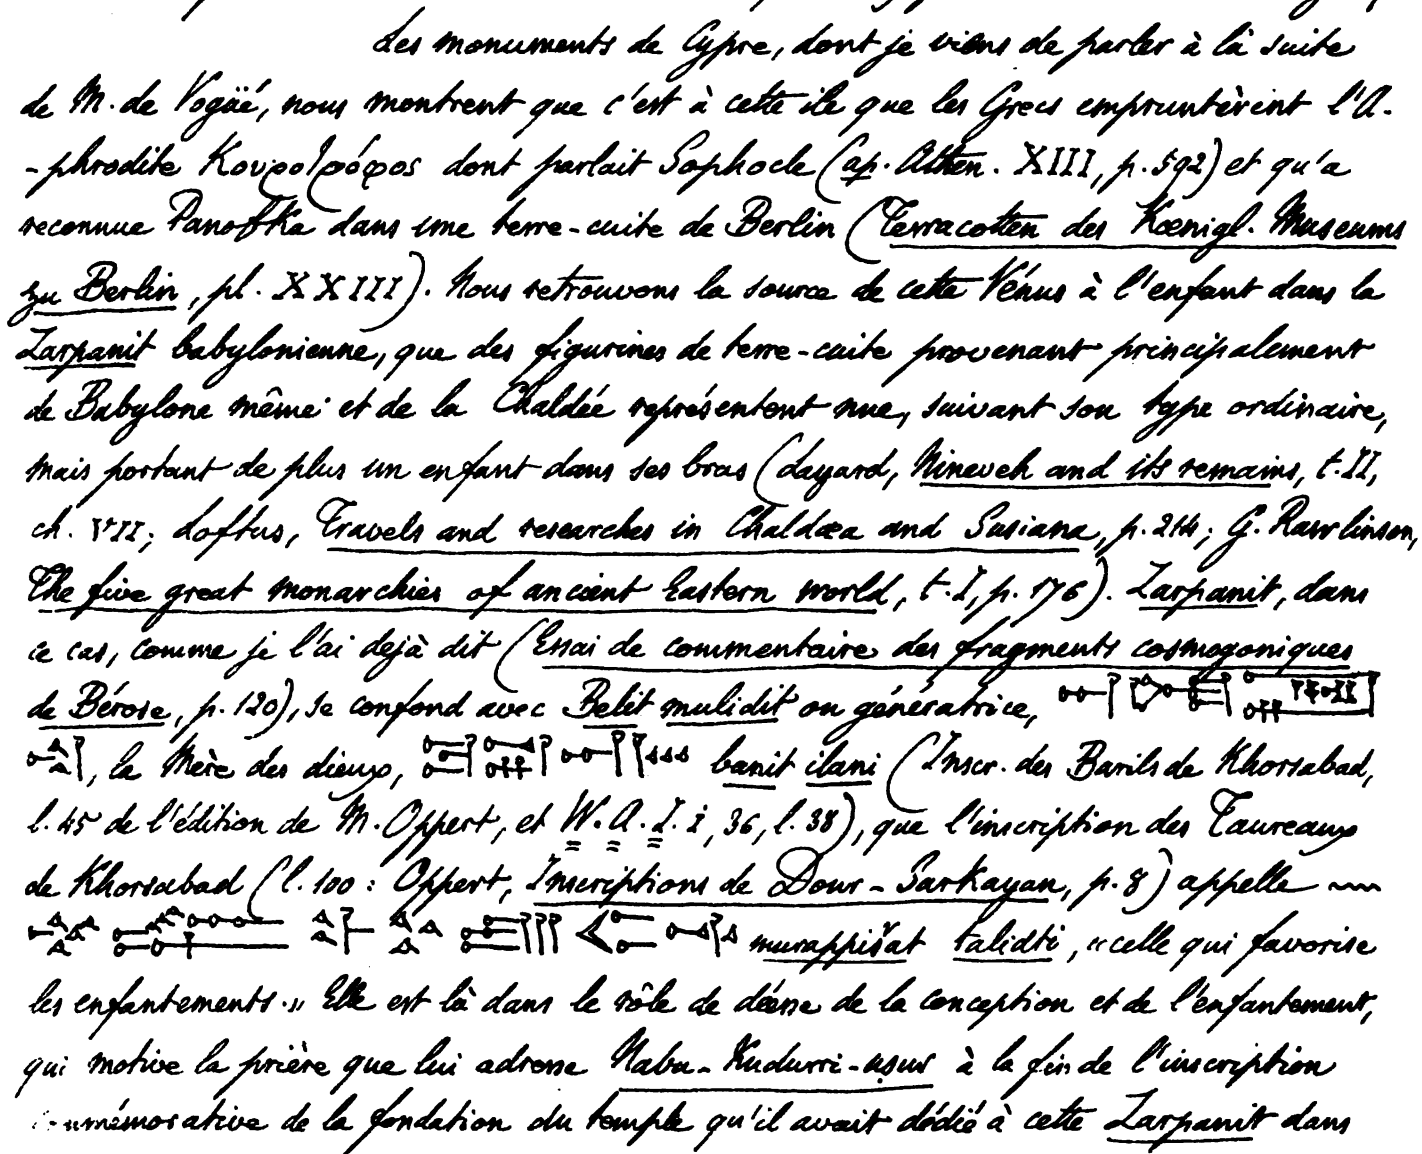 Les monuments de Cypre, dont je viens de parler à la suite
de M. de Vogüé, nous montrent que c'est à cette île que les Grecs empruntèrent l'A-
-phrodite Κουροτρόφος dont parlait Sophocle (ap. Athen. XIII, p. 592) et qu'a
reconnue Panofka dans une terre-cuite de Berlin (Terracotten des Kœnigl. Museums
zu Berlin, pl. XXIII). Nous retrouvons la source de cette Vénus à l'enfant dans la
Zarpanit babylonienne, que des figurines de terre-cuite provenant principalement
de Babylone même et de la Chaldée représentent nue, suivant son type ordinaire,
mais portant de plus un enfant dans ses bras (Layard, Nineveh and its remains, t. II,
ch. VII; Loftus, Travels and researches in Chaldæa and Susiana, p. 214; G. Rawlinson,
The five great monarchies of ancient Eastern world, t. I, p. 176). Zarpanit, dans
ce cas, comme je l'ai dejà dit (Essai de commentaire des fragments cosmogoniques
de Bérose, p. 120), se confond avec Belit mulidit ou génératrice,
, la Mère des dieux, banit ilani (Inscr. des Barils de Khorsabad,
l. 45 de l'édition de M. Oppert, et W. A. I. i, 36, l. 38), que l'inscription des Taureaux
de Khorsabad (l. 100 : Oppert, Inscriptions de Dour-Sarkayan, p. 8) appelle
murappišat talidti, «celle qui favorise
les enfantements.» Elle est là dans le rôle de déesse de la conception et de l'enfantement,
qui motive la prière que lui adresse Nabu-Kudurri-uṣur à la fin de l'inscription
commémorative de la fondation du temple qu'il avait dédié à cette Zarpanit dans